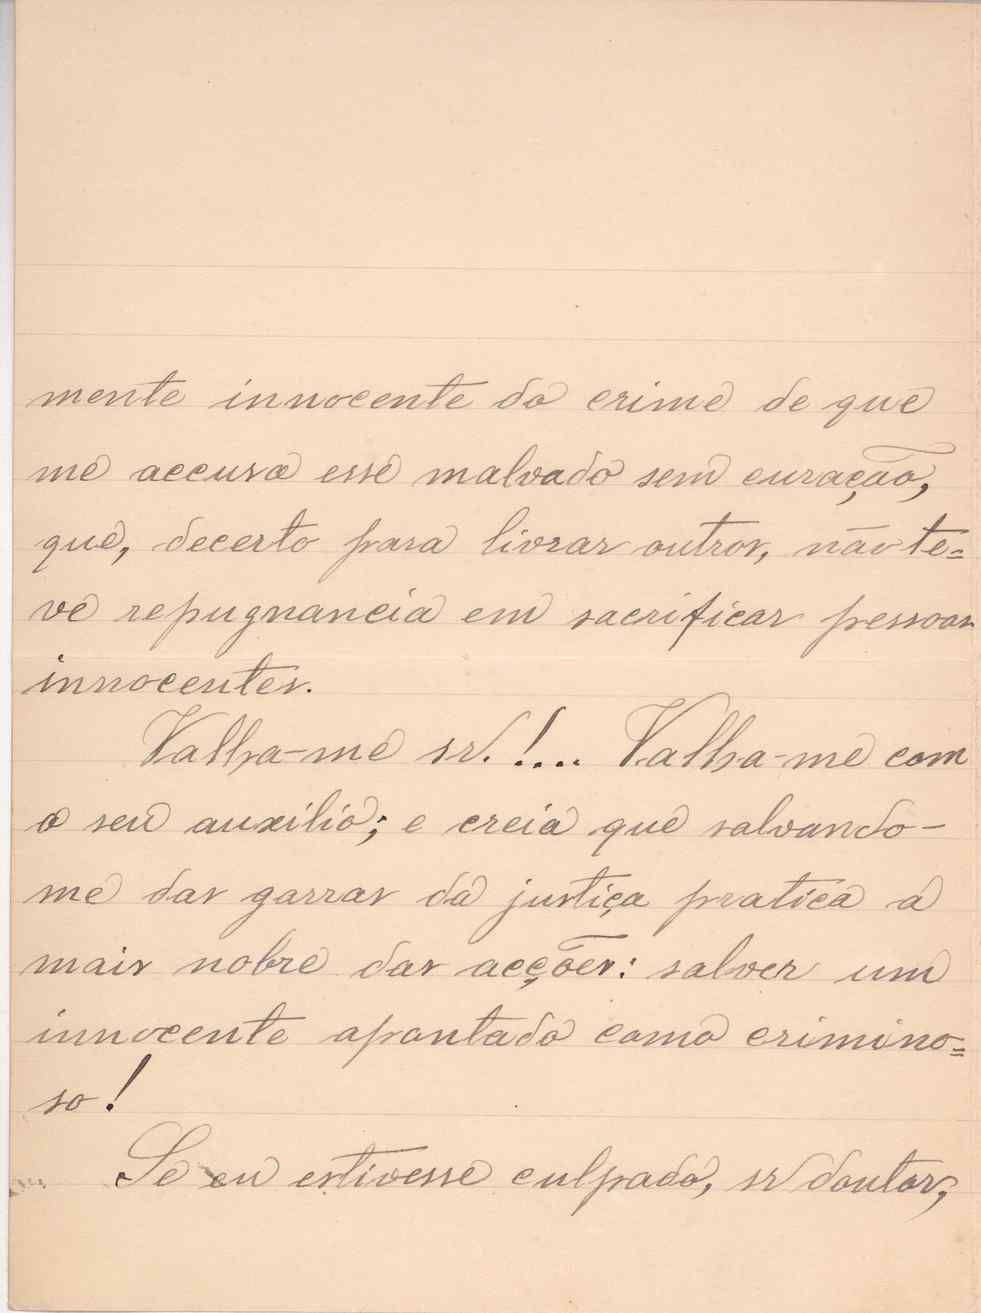 mente innocente do crime de que
me accusa esse malvado sem curação,
que, decerto para livrar outros, não te=
ve repugnancia em sacrificar pessoas
innocentes.
Valha-me sr.!.... Valha-me com
o seu auxilio; e creia que salvando-
me das garras da justiça pratica a
mais nobre das acções: salver um
innocente apontado como crimino=
so!
Se eu estivesse culpado, sr doutor,